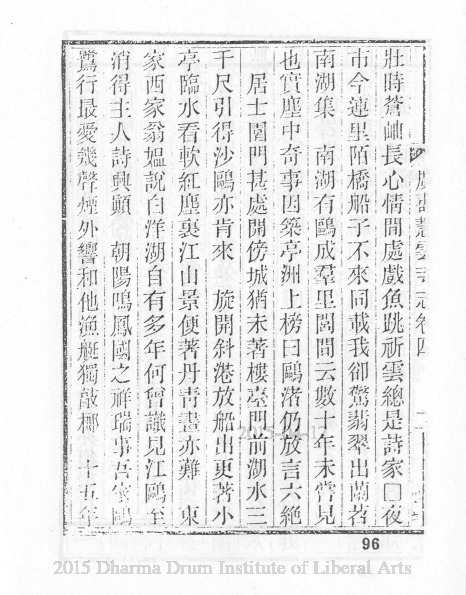 廣壽慧雲寺志卷四
壯時蒼岫長心情閒處戲魚跳祈雲總是詩家□夜
市今連里陌橋船子不來同載我卻驚翡翠出蘭苕
南湖集　南湖有鷗成羣里閭間云數十年未嘗見
也實塵中奇事因築亭洲上榜曰鷗渚仍放言六絕
居士園門甚處開傍城猶未著樓臺門前湖水三
千尺引得沙鷗亦肯來　旋開斜港放船出更著小
亭臨水看軟紅塵裏江山景便著丹青畫亦難　東
家西家翁媼說白洋湖自有多年何曾識見江鷗至
消得主人詩興顛　朝陽鳴鳳國之祥瑞事吾家鷗
鷺行最愛幾聲煙外響和他漁艇獨敲榔　十五年
96
2015 Dharma Drum Institute of Liberal Arts